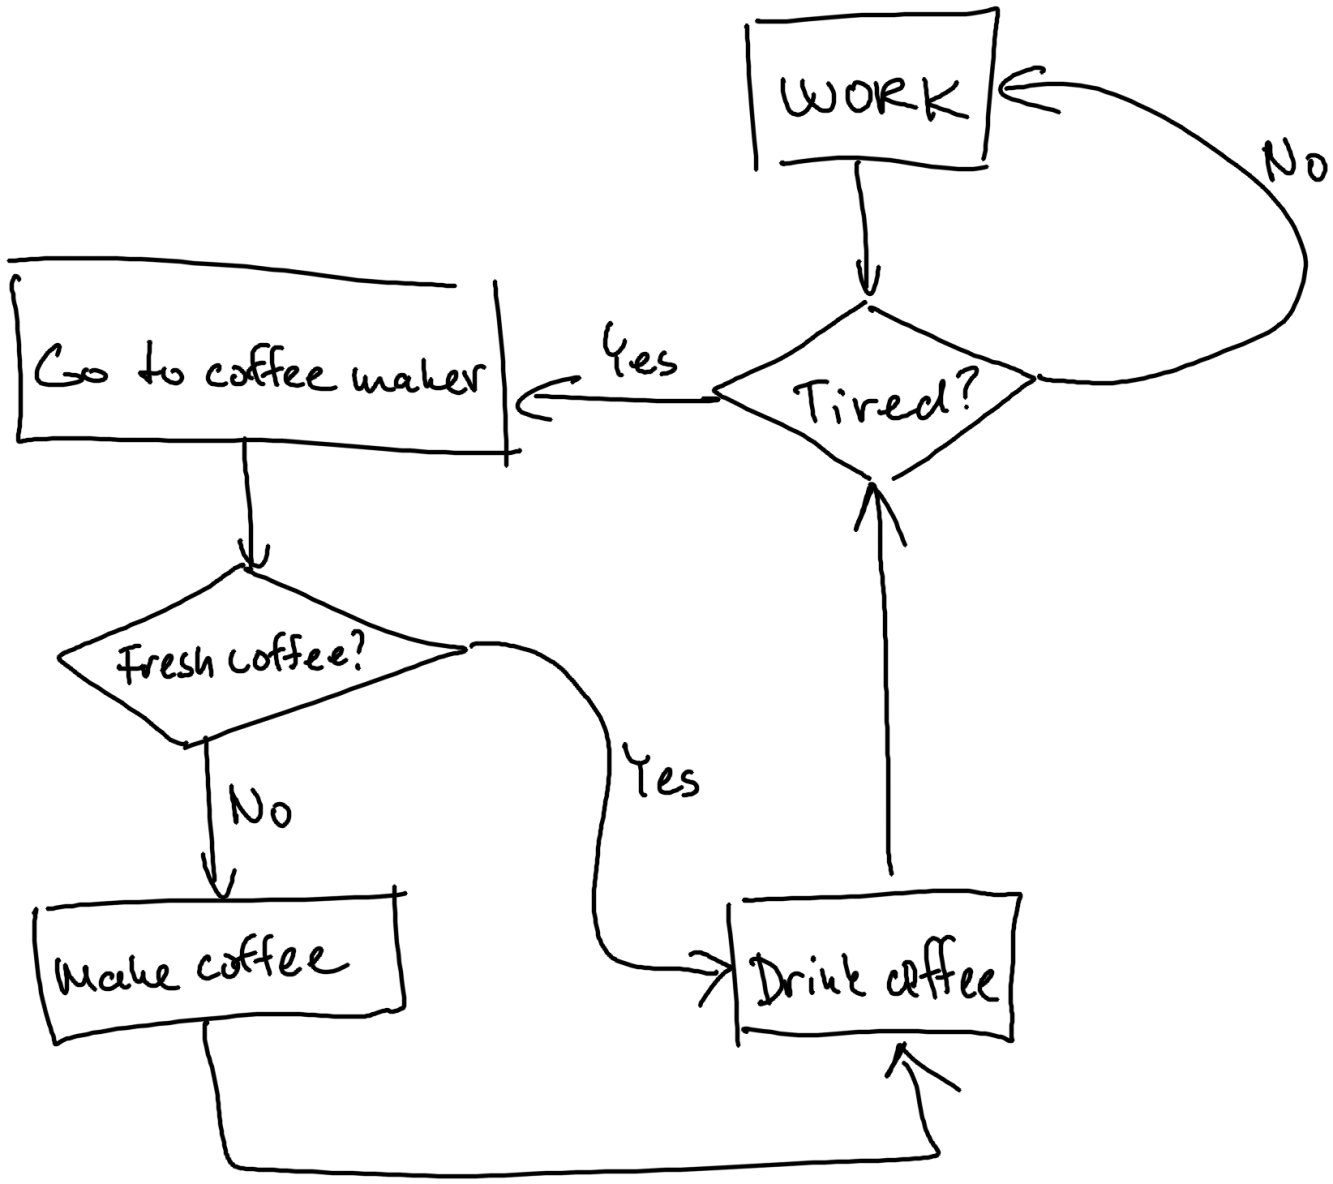 WORK
No
Yes
Tired?
Go to coffee maker
Fresh coffee?
Yes
No
Make coffee
Drink coffee